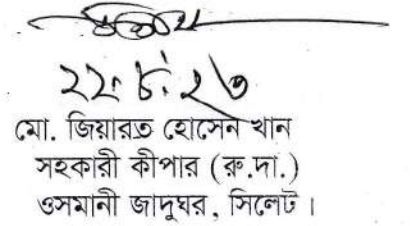 ২২.৮.২৩
মো. জিয়ারত হোসেন খান
সহকারী কীপার (রু.দা.)
ওসমানী জাদুঘর, সিলেট।